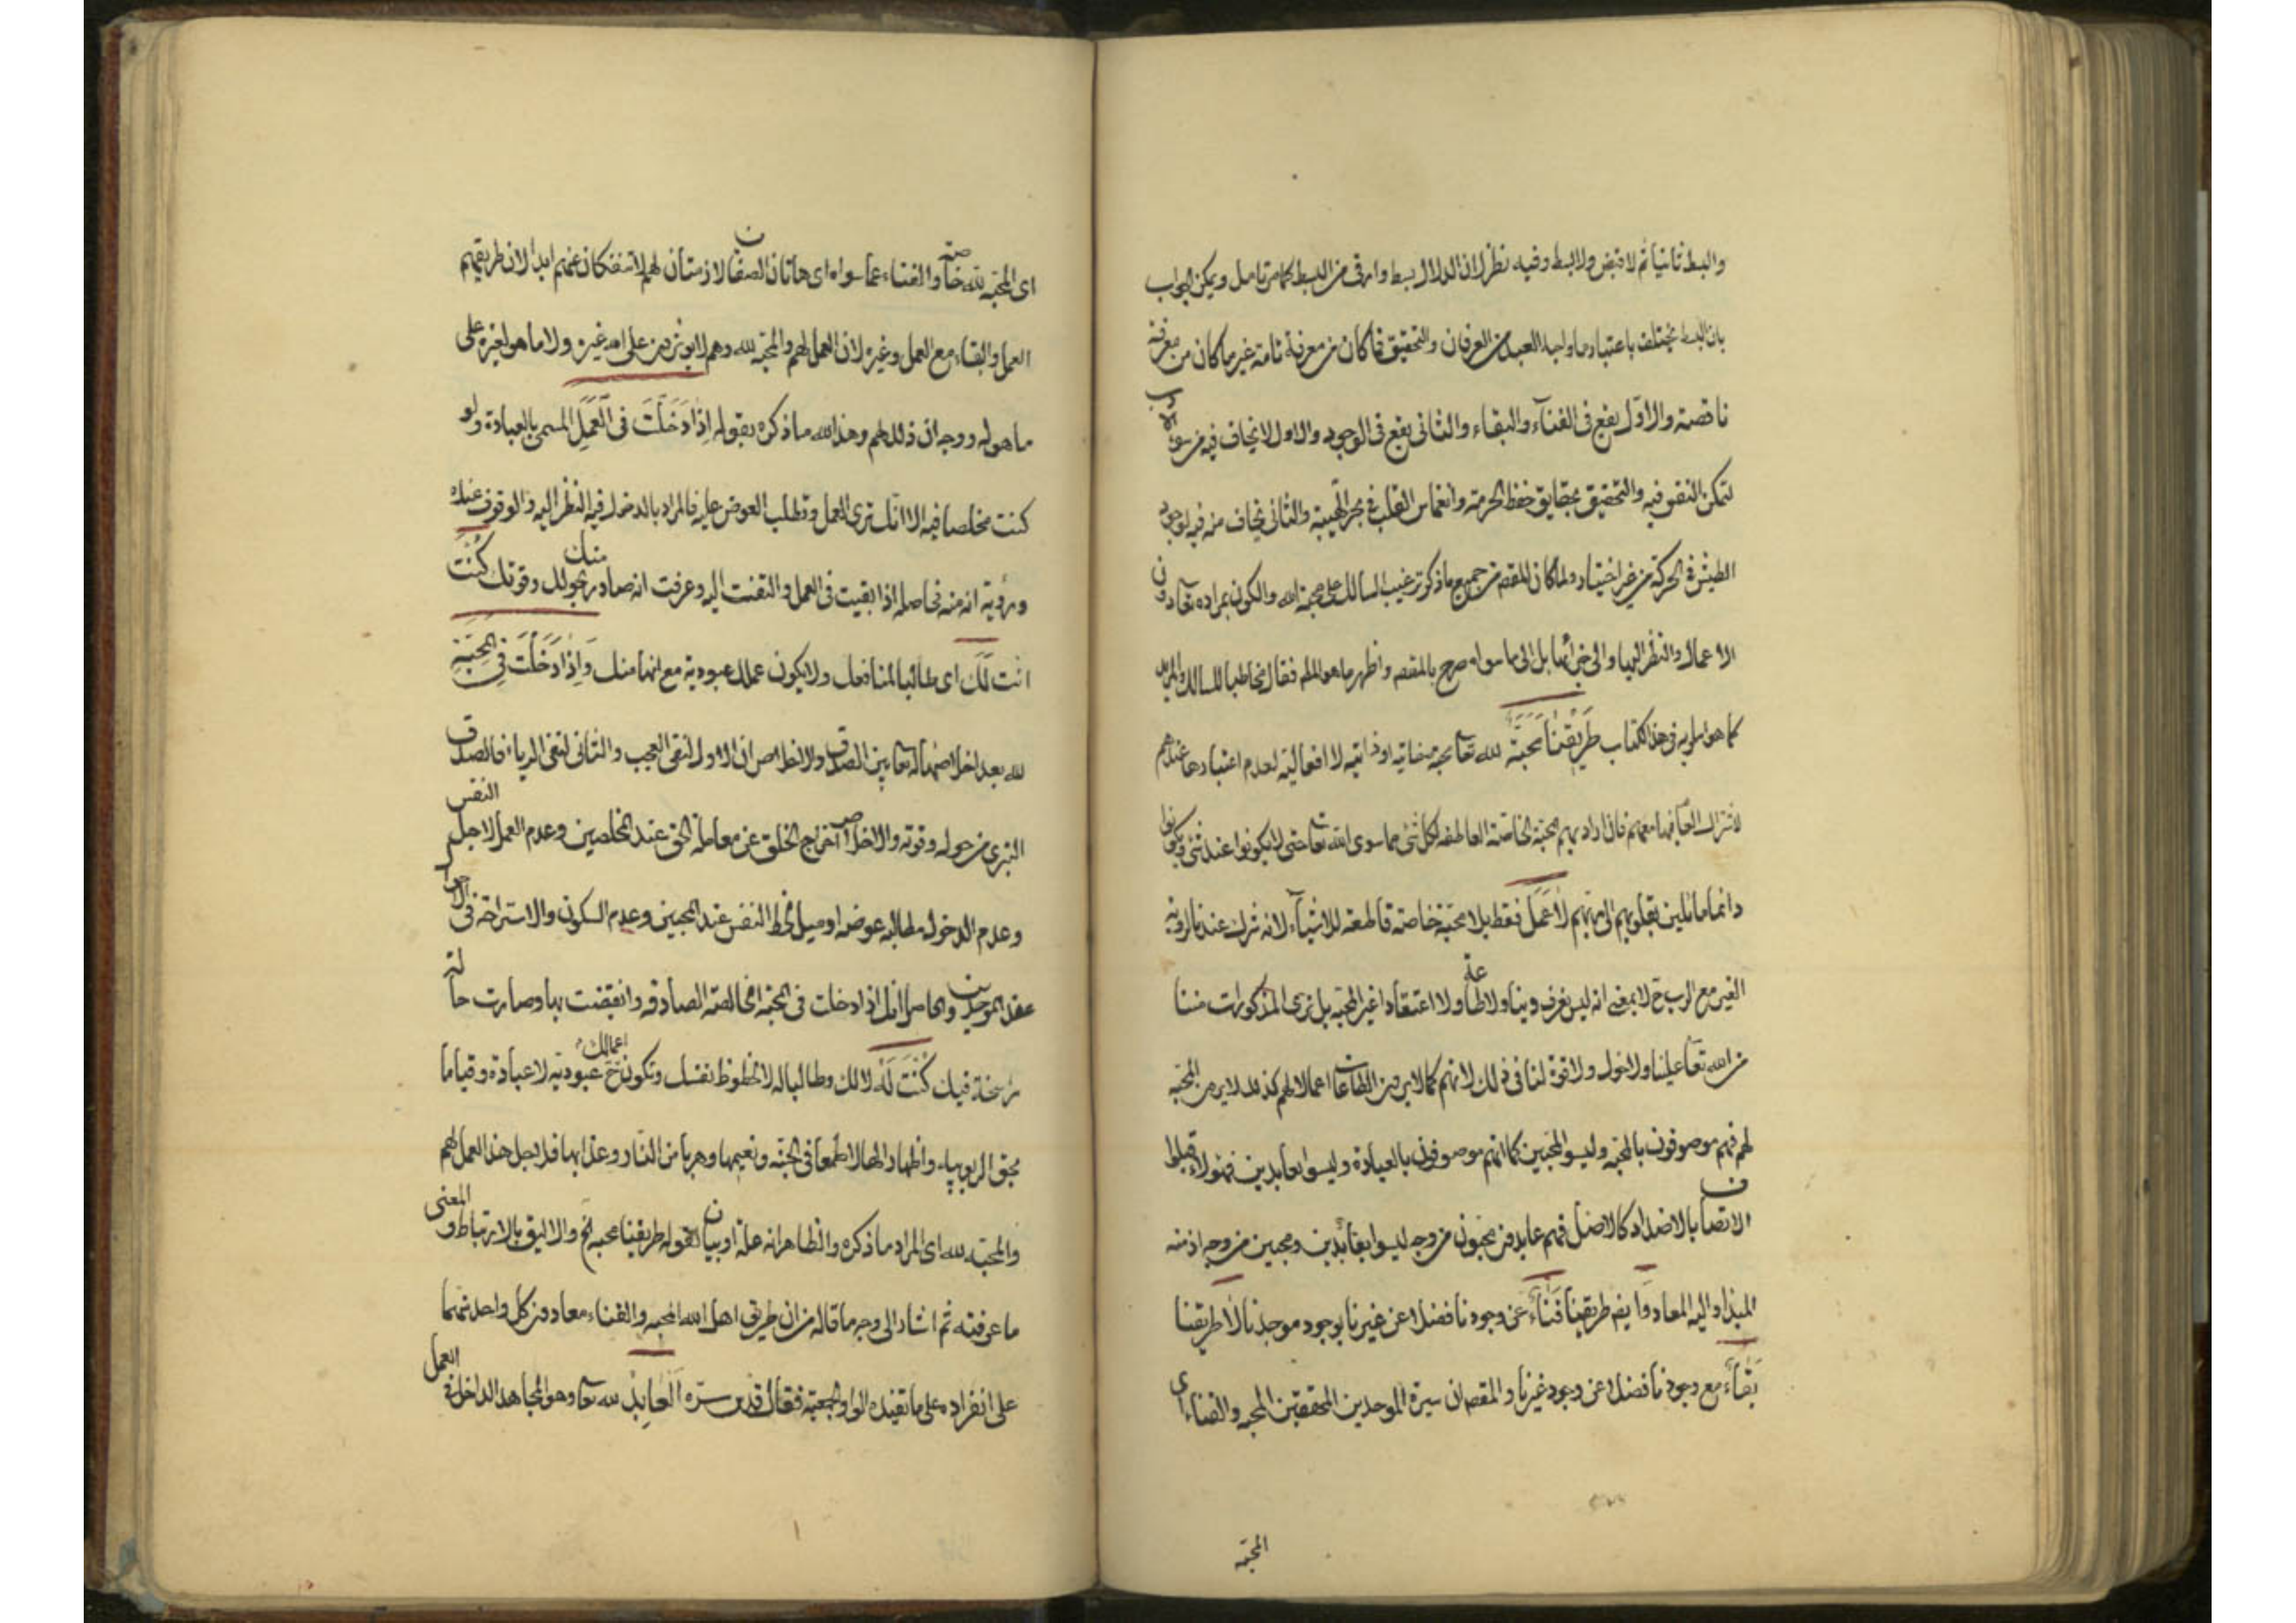 والبسط ثانيا ثم لا قبض ولا بسط وفيه نظر لان الدلال بسط وارقى من البسط كما من تامل ويمكن الجواب
بان البسط يختلف باعتبار ما وليد العبد من العرفان والتحقيق فما كان من معرفة تامة غير ما كان من معرفة
ناقصة والاول يقع فى الفنآء والبقاء والثانى يقع فى الوجود والاول لا يخاف فيه من سوء الادب
لتمكن النفوفيه والتحقيق بحقايق حفظ الحرمة وانغماس القلب فى بحر الهيبة والثانى يخاف منه فيه لوجود
الطيش فى الحركة من غير اختيار ولما كان المقصم من جميع ما ذكر ترغيب السالك على محبة الله والكون بمراده تعآ دون
الاعمال والنظر اليها والى جزائها بل الى ما سواه صرح بالمقصم واظهر ما هو الملم فقال مخاطبا للسالك والمريد
كما هو اسلوبه فى هذا الكتاب طَرِيقُنَا مَحَبَّة لله تعآ محبة صفاتية او ذاتية لا افعالية لعدم اعتبارها عندهم
لاشتراك العآم فيها معهم فان ارادبهم محبة الخاصة العاطفه لكل شئ مما سوى الله تعآ حتى لا يكونوا عند شئ ويكونوا
دائما مائلين بقلوبهم الى ربهم لَا عَمَل فقط بلا محبة خاصة قاطعة للاشيآء لانه شرك عندنا لروية
الغير مع الرب ح لا بمعنى انه ليس بغرض دينا ولا طاعة ولا اعتقادا غير المحبة بل نرى المذكورات مننا
من الله تعآ علينا ولا حول ولا قوة لنا فى ذلك لانهم كما لا يرون الطاعات اعمالا لهم كذلك لا يرون المحبة
لهم فهم موصوفون بالمحبة وليسوا محبين كما انهم موصوفون بالعبادة وليسوا بعابدين فهولاء قبلوا
الاتصاف بالاضداد كالاصل فهم عابدون محبون من وجه ليسوا بعابدين ومحبين من وجه اذ منه
المبدا واليه المعاد وا يضم طريقنا فَنَاءٌ عن وجودنا فضلا عن غيرنا بوجود موجدنا لَا طريقنا
بَقَآءٌ مع وجودنا فضلا عن وجود غيرنا والمقصم ان سيرة الموحدين المحققين المحبه والفناء اى
المحبة
اى المحبة لله خاصة والفناء عما سواه اى هاتان الصفتان لازمتان لهم لا تنفكان عنهم ابدا لان طريقهم
العمل والبقاء مع العمل وغيره لان العمل لهم والمحبة لله وهم لا يوثرون على الله غيره ولا ما هو لغيره على
ما هو له ووجه ان ذلك لهم وهذا لله ما ذكره بقوله اِذَا دَخَلْتَ فى الْعَمَلِ المسمى بالعبادة ولو
كنت مخلصا فيه الا انك ترى العمل وتطلب العوض عليه فالمراد بالدخول فيه النظر اليه والوقوف عنده
ورؤية انه منه فحاصله اذا بقيت فى العمل والتفت اليه وعرفت انه صادر منك بحولك وقوتك كُنْتَ
انت لَكَ اى طالبا لمنافعك ولا يكون عملك عبودية مع انها منك وَاِذَا دَخَلْتَ فِى الْمَحَبَّةِ
لله بعد اخلاصها له تعآ بين الصدق والاخلاص ان الاول لنفى العجب والثانى لنفى الرياء فالصدق
التبرى من حوله وقوته والاخلاص آخراج الخلق عن معاملة الحق عند المخلصين وعدم العمل لاجل النفس
وعدم الدخول مطالبه عوض او ميل لحظ النفس عند المحبين وعدم السكون والاستراحة فى الاحوال
عند الموحدين والحاصل انك اذا دخلت فى المحبة الخالصة الصادقه واتصفت بها وصارت حالة
راسخة فيك كُنْتَ لَهُ لا لك وطالبا له لا لحظوظ نفسك وتكون اعمالك ح عبودية لا عبادة وقياما
بحق الربوبية واظهارا لها لا طمعا فى الجنة ونعيمها وهربا من النار وعذابها فلاجل هذا العمل لهم
والمحبة لله اى المراد ما ذكره والظاهر انه علة او بيان لقوله طريقنا محبة الخ والاليق بالارتباط والمعنى
ما عرفته ثم اشار الى وجه ما قاله من ان طريق اهل الله المحبه والفناء معا دون كل واحد منهما
على انفراده على ما تفيده الواو الجمعية فقال قدس سره الْعَابِدُ لله تعآ وهو المجاهد الداخل فى العمل